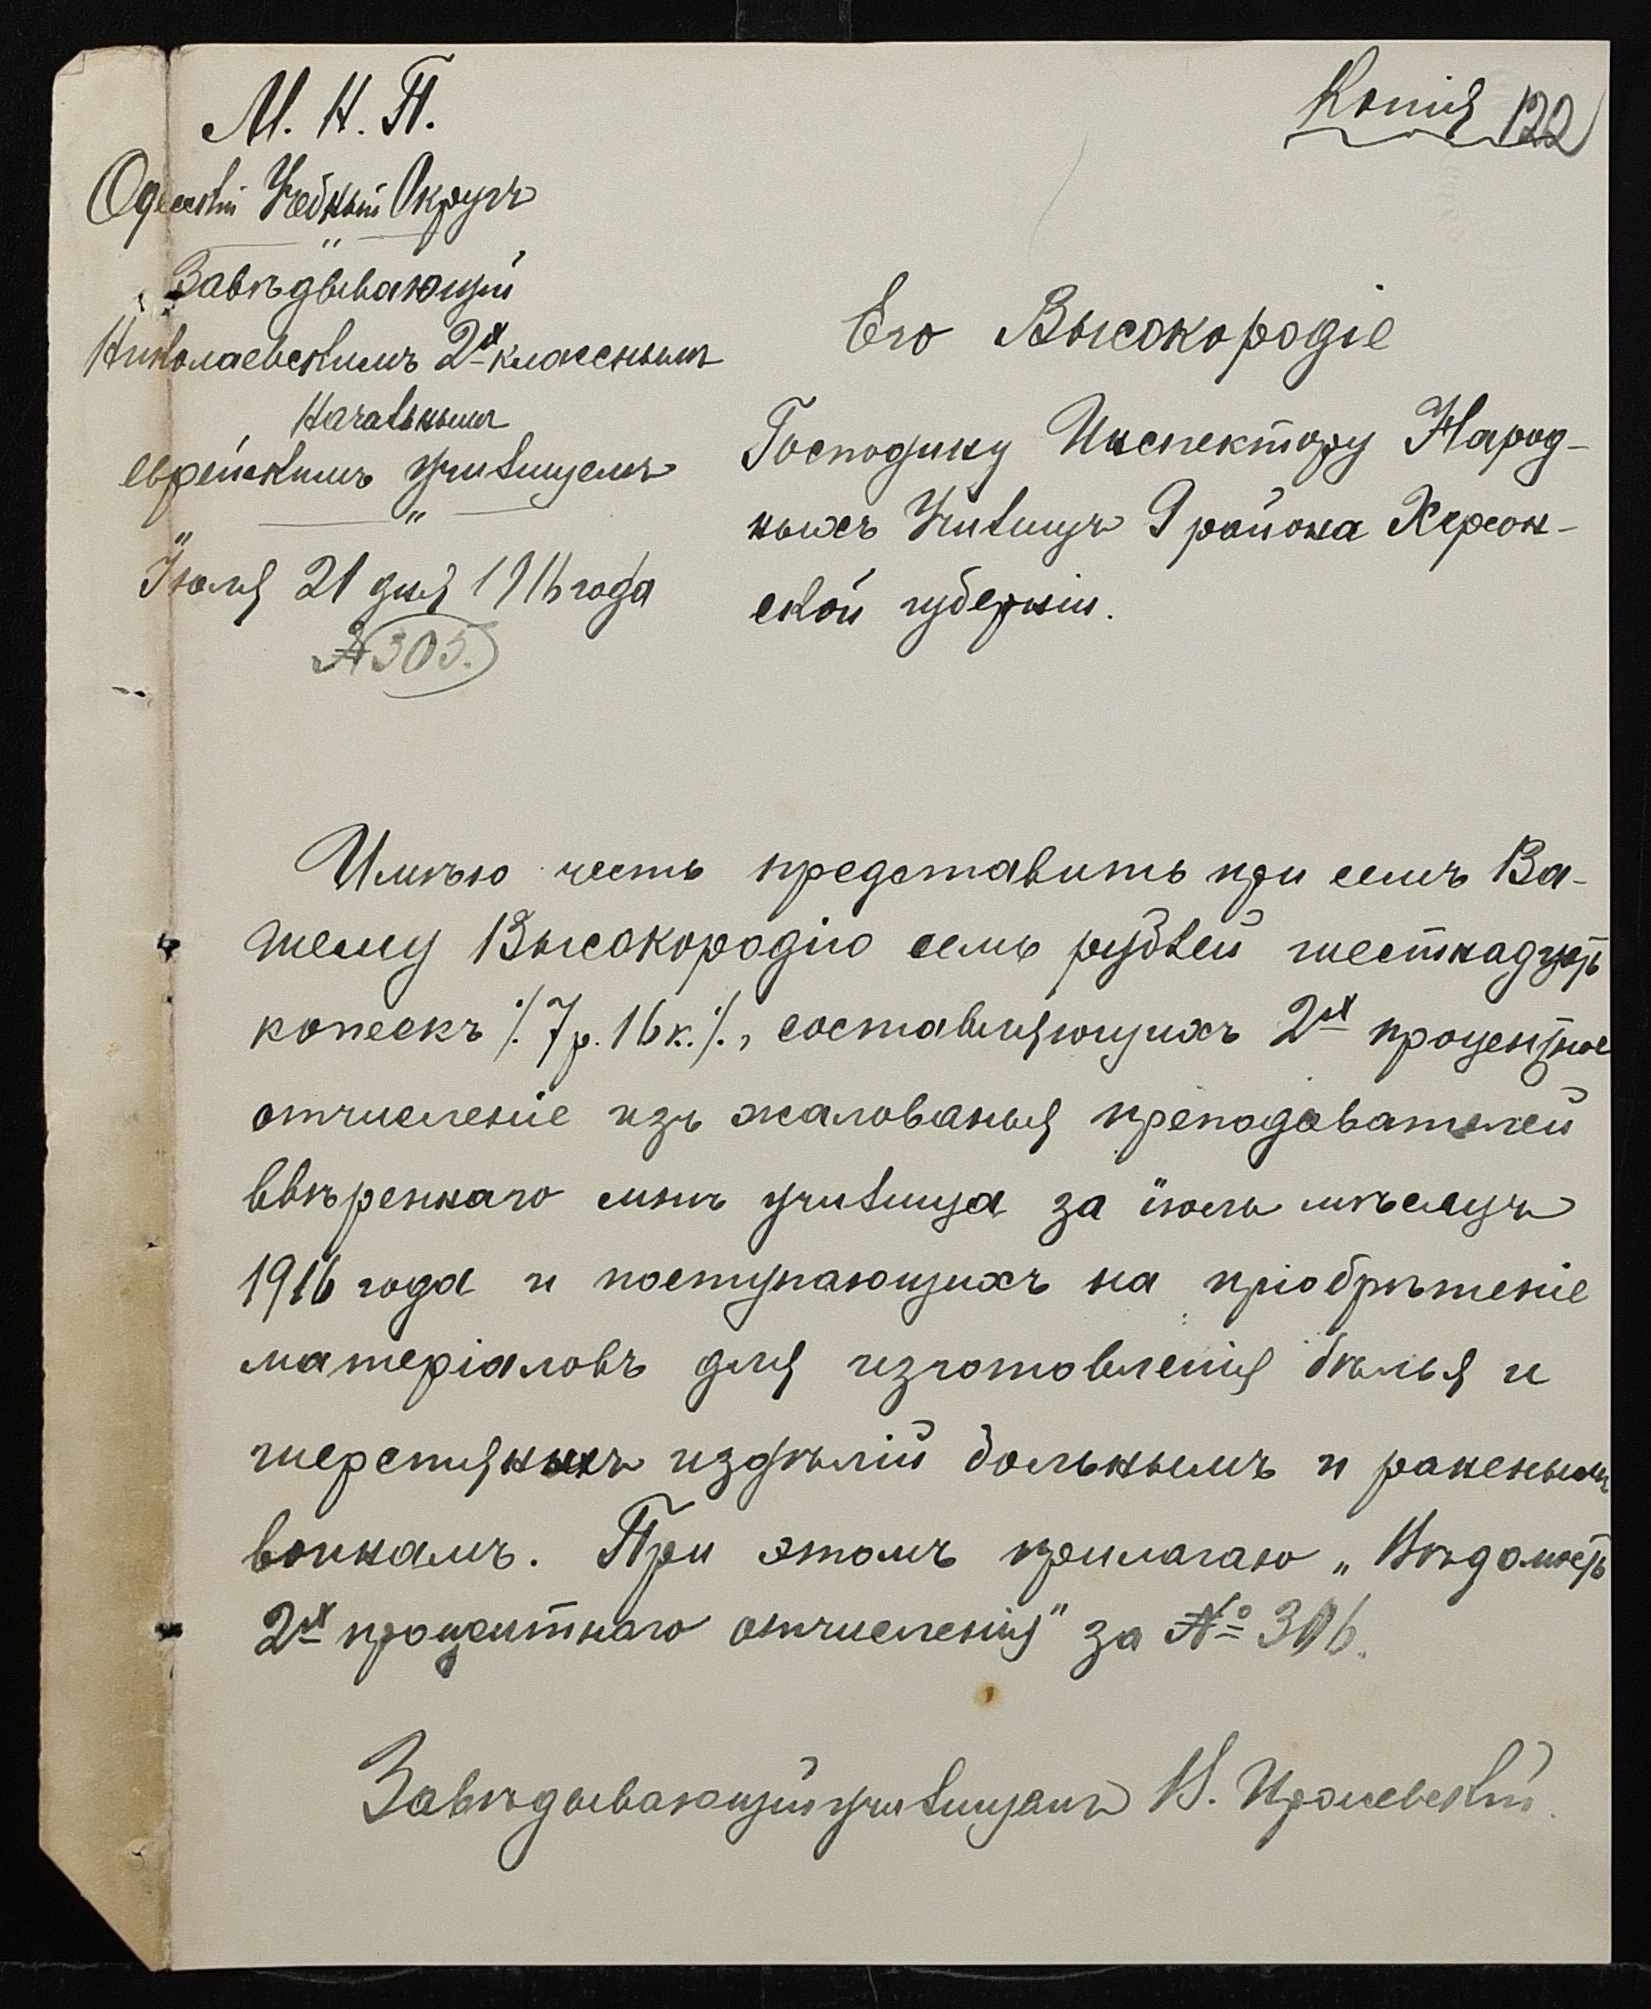 Копія 122
М. Н. П.
Одесскій Учебный Округъ
"
Завѣдывающій
Николаевскимъ 2-хкласснымъ
Начальнымъ
еврейскимъ училищемъ
"
Іюля 21 дня 1916 года
№ 305.
Его Высокородіе
Господину Инспектору Народ-
ныхъ Училищъ 9 района Херсон-
ской губерніи.
Имѣю честь представить при семъ Ва-
шему Высокородію семь рублей шестнадцать
копеекъ /. 7 р. 16 к. /., составляющихъ 2-х процентное
отчисленіе изъ жалованья преподавателей
ввѣреннаго мнѣ училища за іюль мѣсяцъ
1916 года и поступающихъ на пріобрѣтеніе
матеріаловъ для изготовленія бѣлья и
шерстяныхъ издѣлій больнымъ и раненымъ
воинамъ. При этомъ прилагаю „Вѣдомость
2-х процентнаго отчисленія" за № 306.
Завѣдывающій училищемъ В.